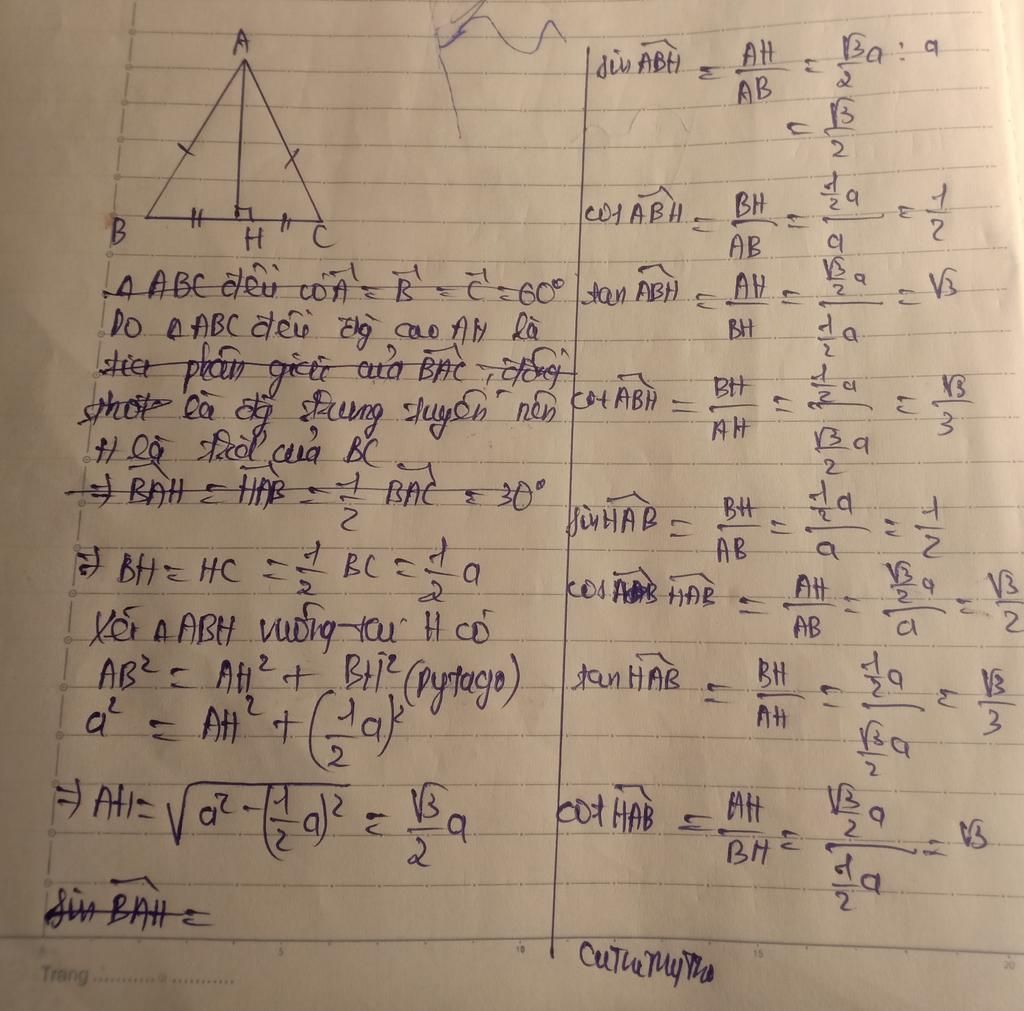 A
B
H
C
Δ ABC đều có Â = B̂ = Ĉ = 60°
Do Δ ABC đều đg cao AH là
phân giác của BAC, đồng
là đg trung tuyến nên
H là của BC
⇒ BAH = HAB = 1/2 BAC = 30°
⇒ BH = HC = 1/2 BC = 1/2 a
Xét Δ ABH vuông tại H có
AB² = AH² + BH² (pytago)
a² = AH² + (1/2 a)²
⇒ AH = √(a² - (1/2 a)²) = √3/2 a
sin BAH =
sin ABH = AH/AB = √3/2 a : a
= √3/2
cos ABH = BH/AB = (1/2 a)/a = 1/2
tan ABH = AH/BH = (√3/2 a)/(1/2 a) = √3
cot ABH = BH/AH = (1/2 a)/(√3/2 a) = √3/3
sin HAB = BH/AB = (1/2 a)/a = 1/2
cos HAB = AH/AB = (√3/2 a)/a = √3/2
tan HAB = BH/AH = (1/2 a)/(√3/2 a) = √3/3
cot HAB = AH/BH = (√3/2 a)/(1/2 a) = √3
Trang
5 10 15 20